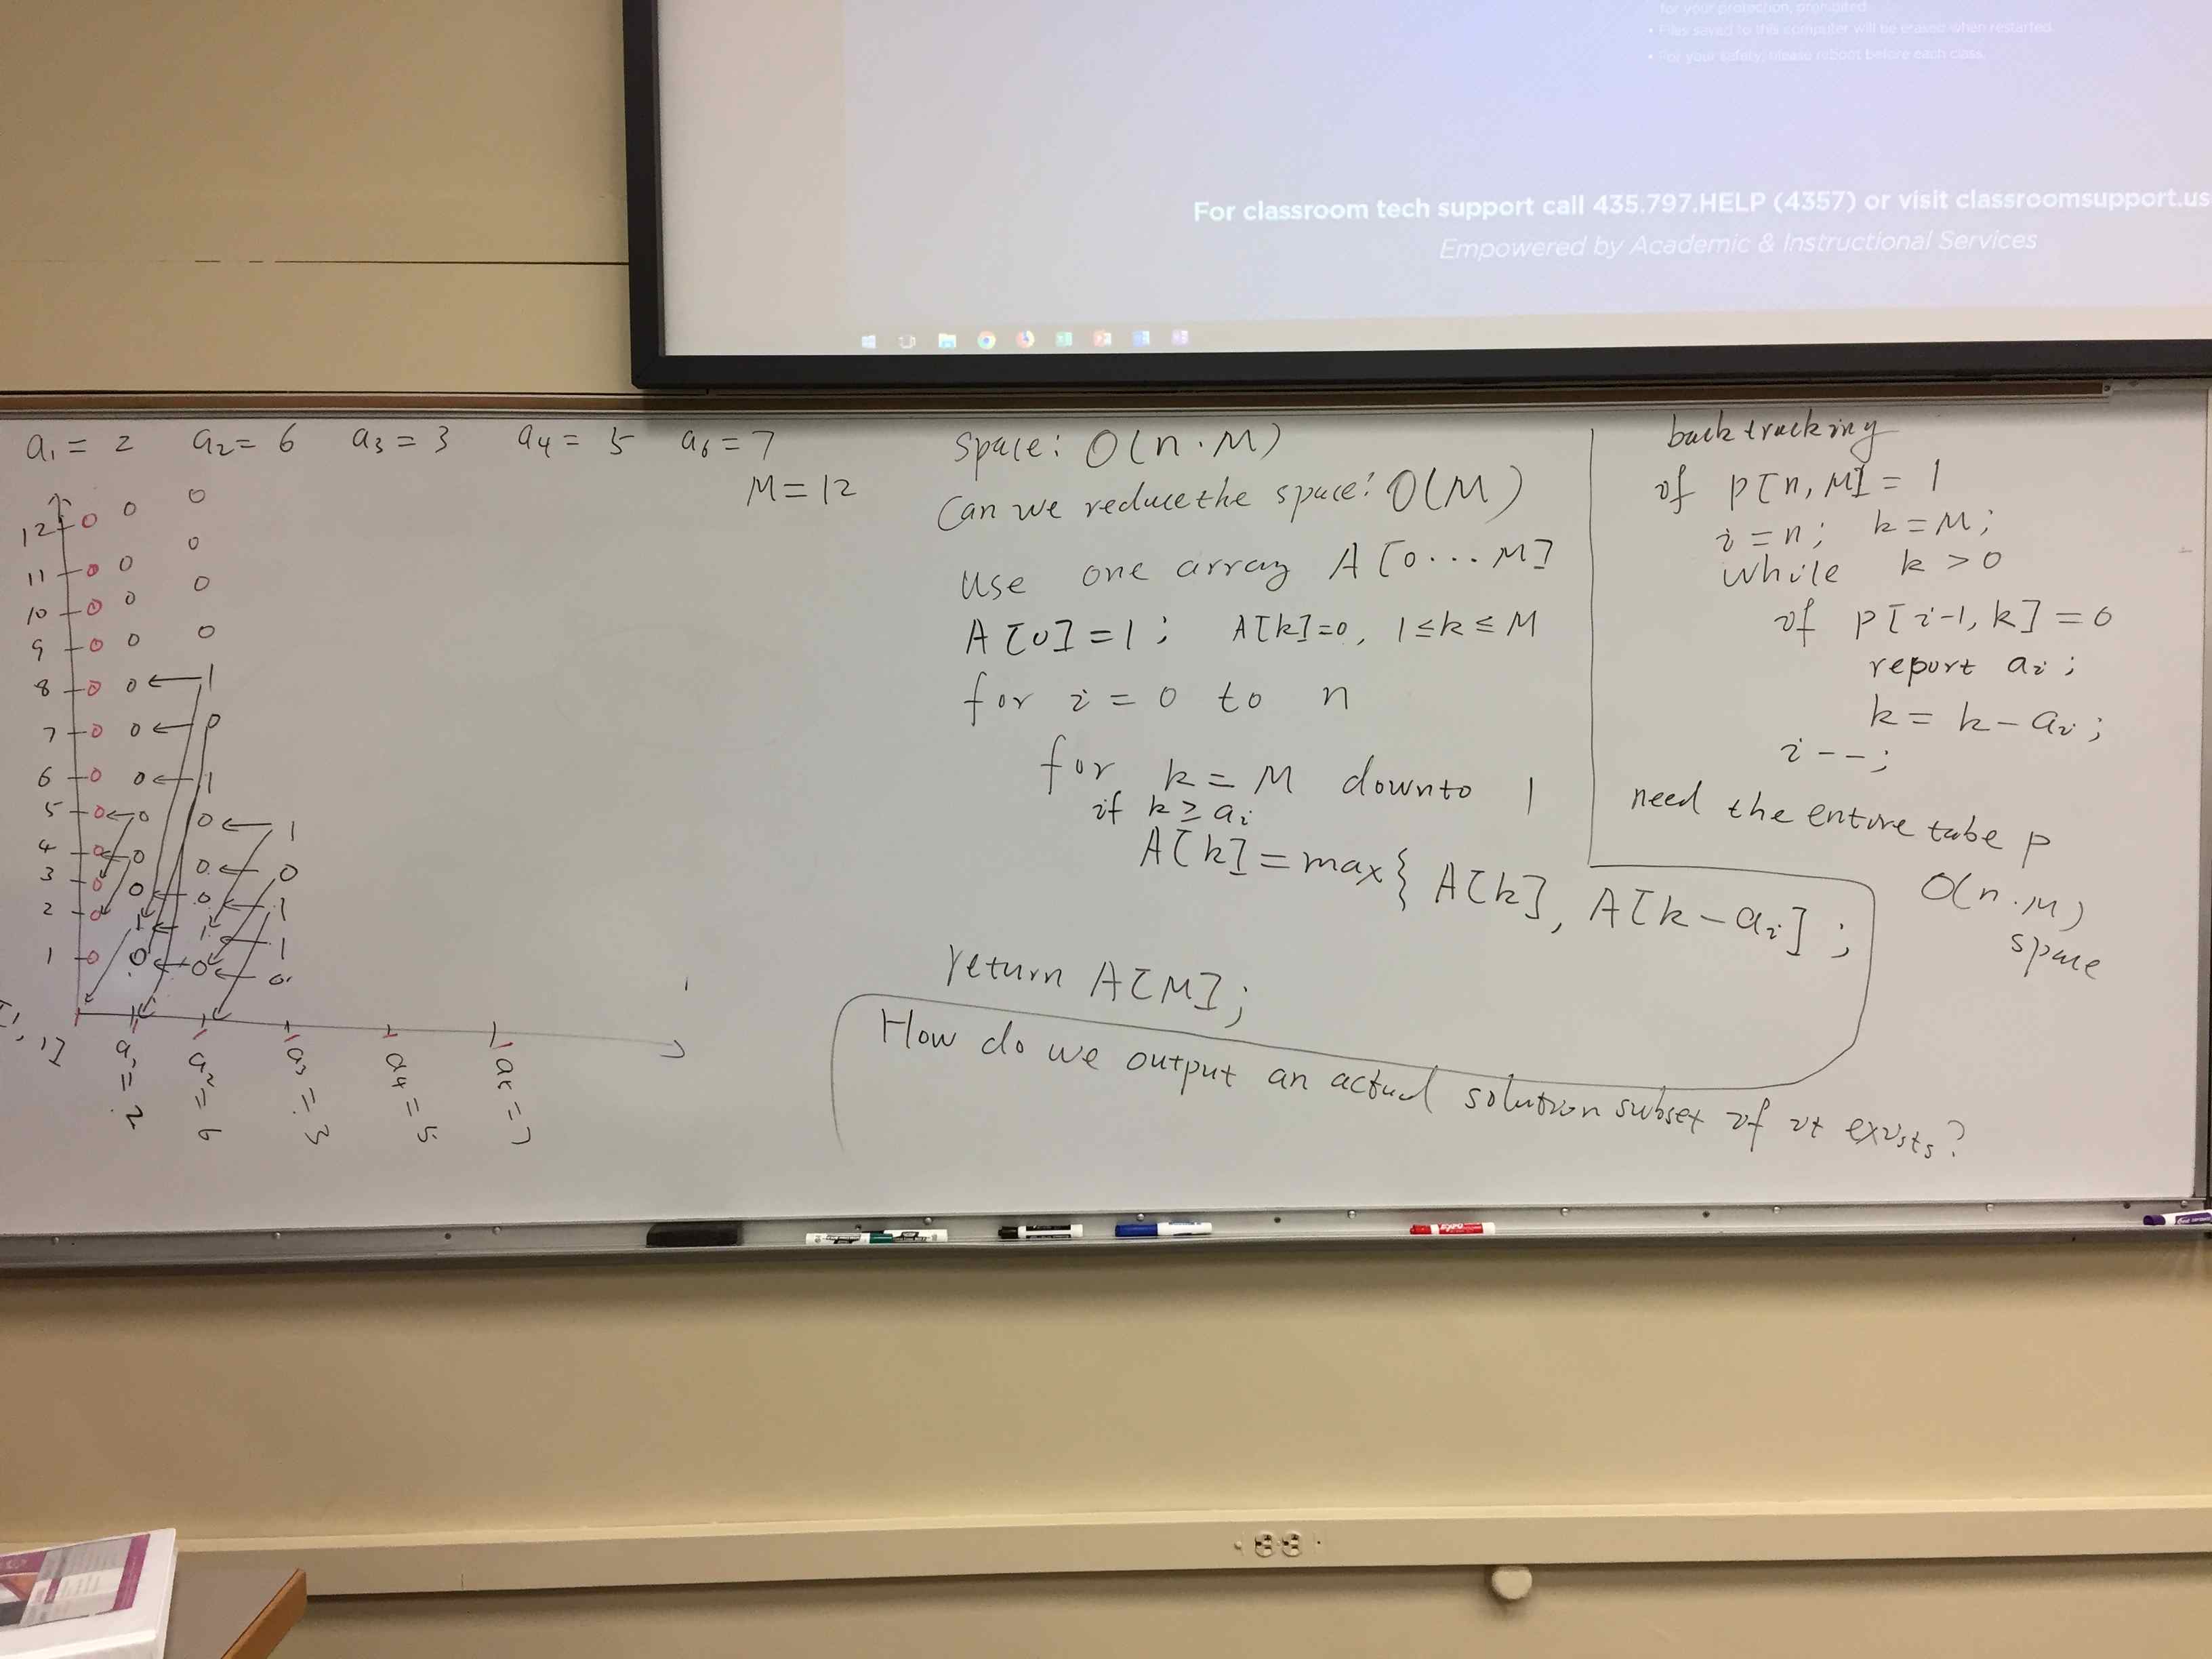 for your protection, prohibited
• Files saved to this computer will be erased when restarted.
• For your safety, please reboot before each class.
For classroom tech support call 435.797.HELP (4357) or visit classroomsupport.us
Empowered by Academic & Instructional Services
a₁ = 2 a₂ = 6 a₃ = 3 a₄ = 5 a₆ = 7
M = 12
12 0 0 0
11 0 0 0
10 0 0 0
9 0 0 0
8 0 0 1
7 0 0 0
6 0 0 1
5 0 0 0 1
4 0 0 0 0
3 0 0 0 1
2 0 1 1 1
1 0 0 0 0
a₁ = 2
a₂ = 6
a₃ = 3
a₄ = 5
a₅ = 7
space: O(n·M)
Can we reduce the space: O(M)
Use one array A[0...M]
A[0]=1; A[k]=0, 1≤k≤M
for i = 0 to n
for k = M downto 1
if k ≥ aᵢ
A[k] = max{ A[k], A[k-aᵢ];
return A[M];
How do we output an actual solution subset if it exists?
backtracking
if p[n,M] = 1
i = n; k = M;
while k > 0
if p[i-1, k] = 0
report aᵢ;
k = k - aᵢ;
i--;
need the entire tabe p
O(n·M)
space